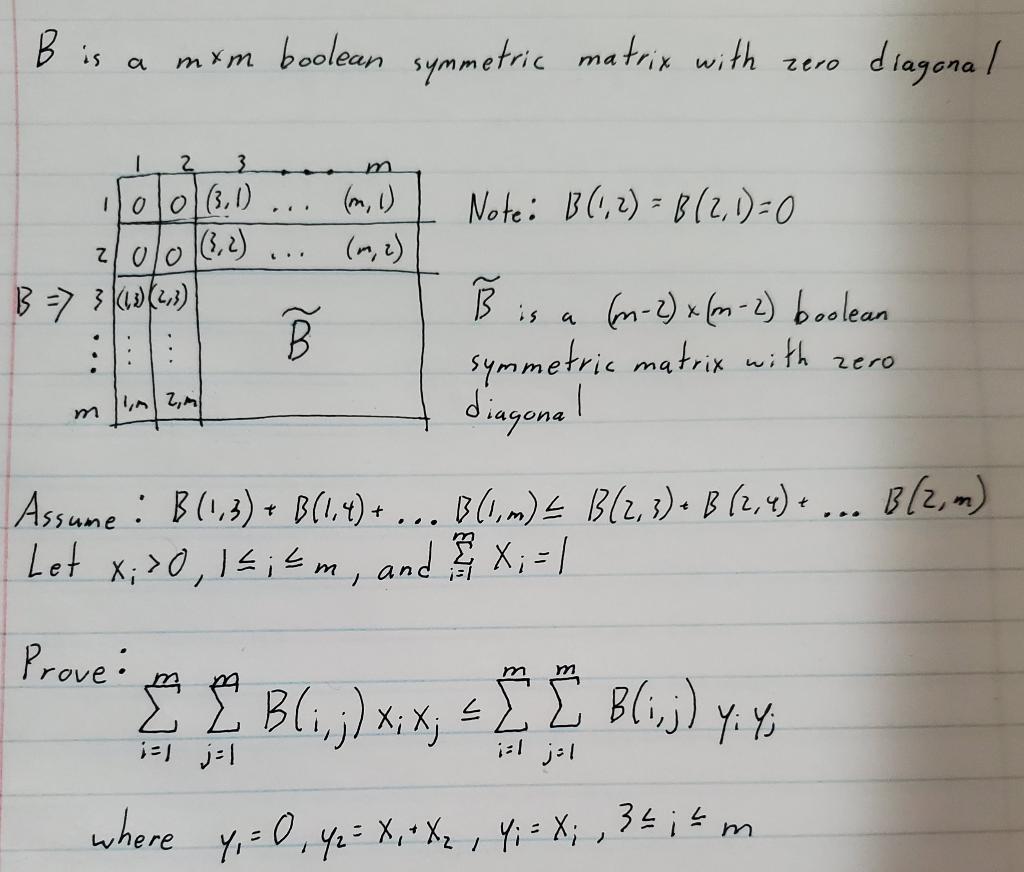 B is a m×m boolean symmetric matrix with zero diagonal
1 2 3 ... m
1 0 0 (3,1) ... (m,1)
Note: B(1,2) = B(2,1)=0
2 0 0 (3,2) ... (m,2)
B => 3 (1,3) (2,3)
B̃
B̃ is a (m-2)×(m-2) boolean
symmetric matrix with zero
diagonal
⋮ ⋮ ⋮
m 1,m 2,m
Assume: B(1,3) + B(1,4) + ... B(1,m) ≤ B(2,3) + B(2,4) + ... B(2,m)
Let xᵢ>0, 1≤i≤m, and ∑_{i=1}^{m} xᵢ=1
Prove:
∑_{i=1}^{m} ∑_{j=1}^{m} B(i,j) xᵢ xⱼ ≤ ∑_{i=1}^{m} ∑_{j=1}^{m} B(i,j) yᵢ yⱼ
where y₁=0, y₂=x₁+x₂, yᵢ=xᵢ, 3≤i≤m